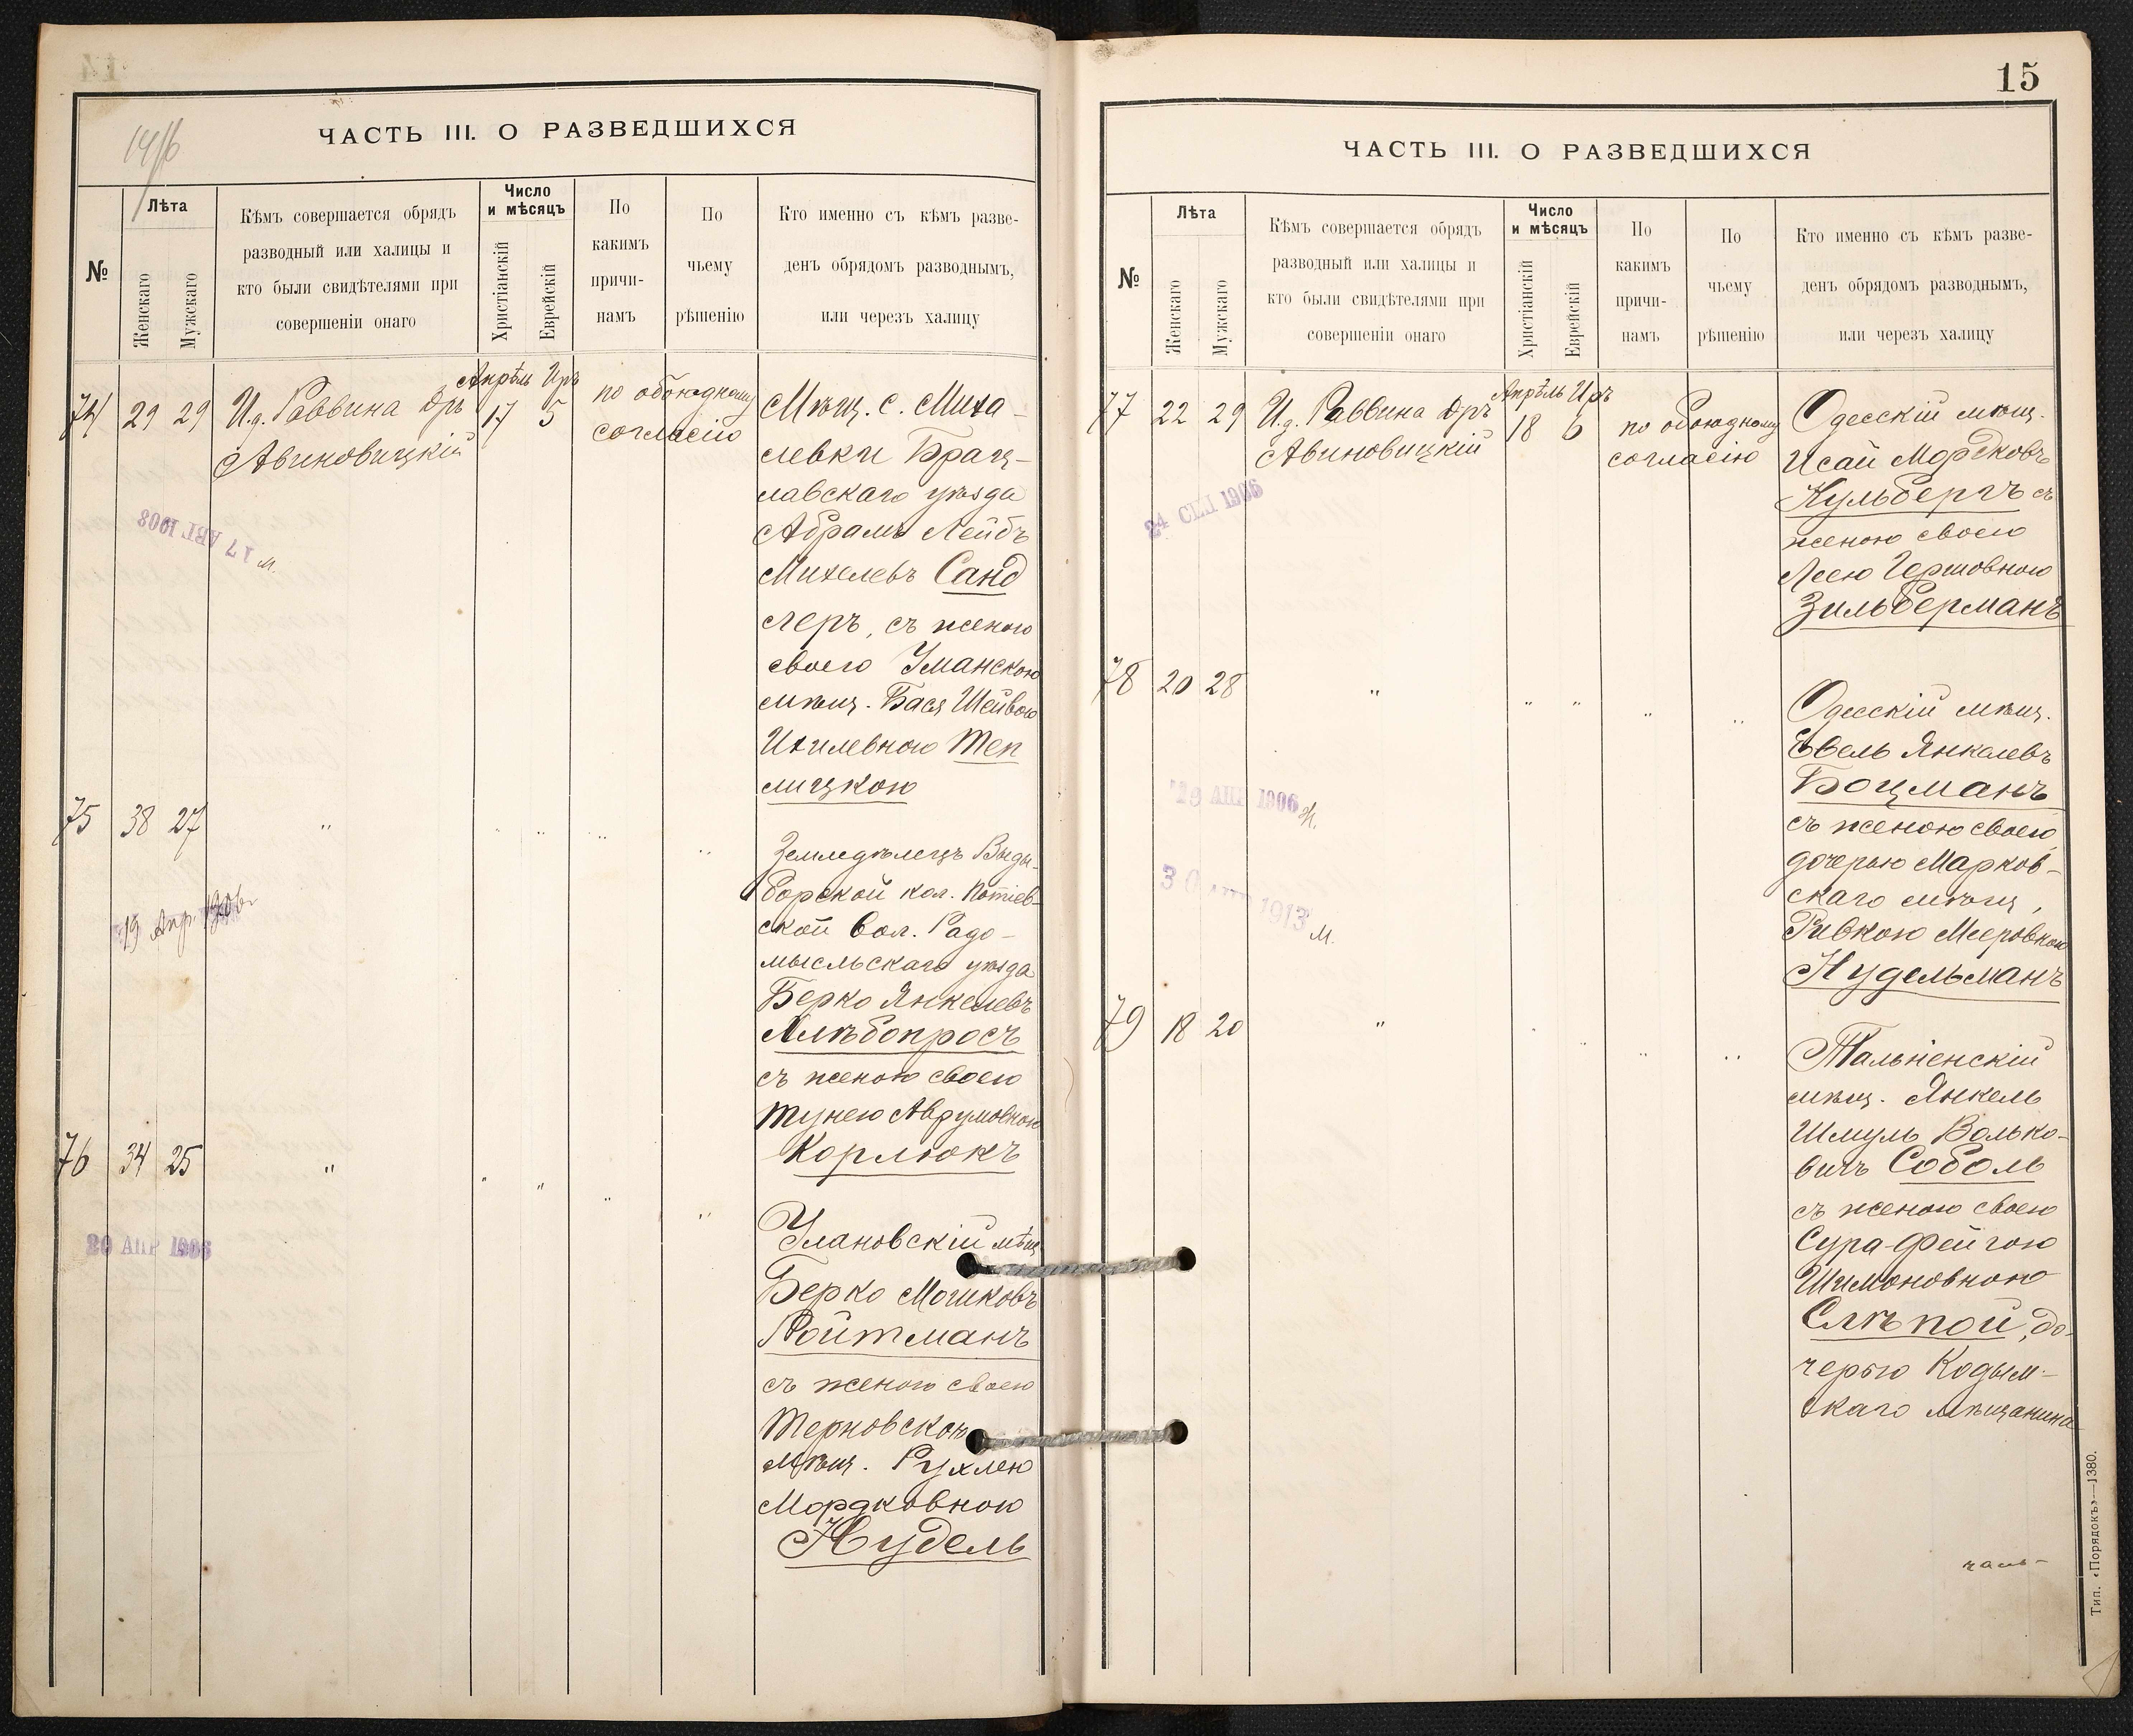 14/6
ЧАСТЬ III. О РАЗВЕДШИХСЯ
№
Лѣта
Женскаго
Мужскаго
Кѣмъ совершается обрядъ
разводный или халицы и
кто были свидѣтелями при
совершеніи онаго
Число
и мѣсяцъ
Христіанскій
Еврейскій
По
какимъ
причи-
намъ
По
чьему
рѣшенію
Кто именно съ кѣмъ разве-
денъ обрядомъ разводнымъ,
или черезъ халицу
74 29 29
И.д. Раввина Дръ
Авиновицкій
Апрѣль Иръ
17 5
по обоюдному
согласію
Мѣщ. с. Миха-
левки Брац-
лавскаго уѣзда
Абрамъ Лейбъ
Михелевъ Санд
леръ, съ женою
своею Уманскою
мѣщ. Бася Шейвою
Ихилевною Теп
лицкою
17 АВГ 1908 м.
75 38 27 " " " " "
Земледѣлецъ Выды-
борской кол. Потіев-
ской вол. Радо-
мысльскаго уѣзда
Берко Янкелевъ
Хлѣбопросъ
съ женою своею
Тунею Аврумовною
Корлюкъ
19 Апр. 1906
76 34 25 " " " " "
Улановскій мѣщ.
Берко Мошковъ
Ройтманъ
съ женою своею
Терновскою
мѣщ. Рухлею
Мордковною
Нудель
20 АПР 1906
15
ЧАСТЬ III. О РАЗВЕДШИХСЯ
№
Лѣта
Женскаго
Мужскаго
Кѣмъ совершается обрядъ
разводный или халицы и
кто были свидѣтелями при
совершеніи онаго
Число
и мѣсяцъ
Христіанскій
Еврейскій
По
какимъ
причи-
намъ
По
чьему
рѣшенію
Кто именно съ кѣмъ разве-
денъ обрядомъ разводнымъ,
или черезъ халицу
77 22 29
И.д. Раввина Дръ
Авиновицкій
Апрѣль Иръ
18 6
по обоюдному
согласію
Одесскій мѣщ.
Исай Мордковъ
Кульбергъ съ
женою своею
Леею Гершовною
Зильберманъ
24 СЕН 1906
78 20 28 " " " " "
Одесскій мѣщ.
Евель Янкелевъ
Боцманъ
съ женою своею,
дочерью Марков-
скаго мѣщ.,
Ривкою Мееровною
Нудельманъ
АПР 1906 Ж.
30 АПР 1913 М.
79 18 20 " " " " "
Тальненскій
мѣщ. Янкель
Шмуль Волько-
вичъ Соболь
съ женою своею
Сура-Фейгою
Шимоновною
Слѣпой, до-
черью Кодым-
скаго мѣщанина
Тип. «Порядокъ»—1380.